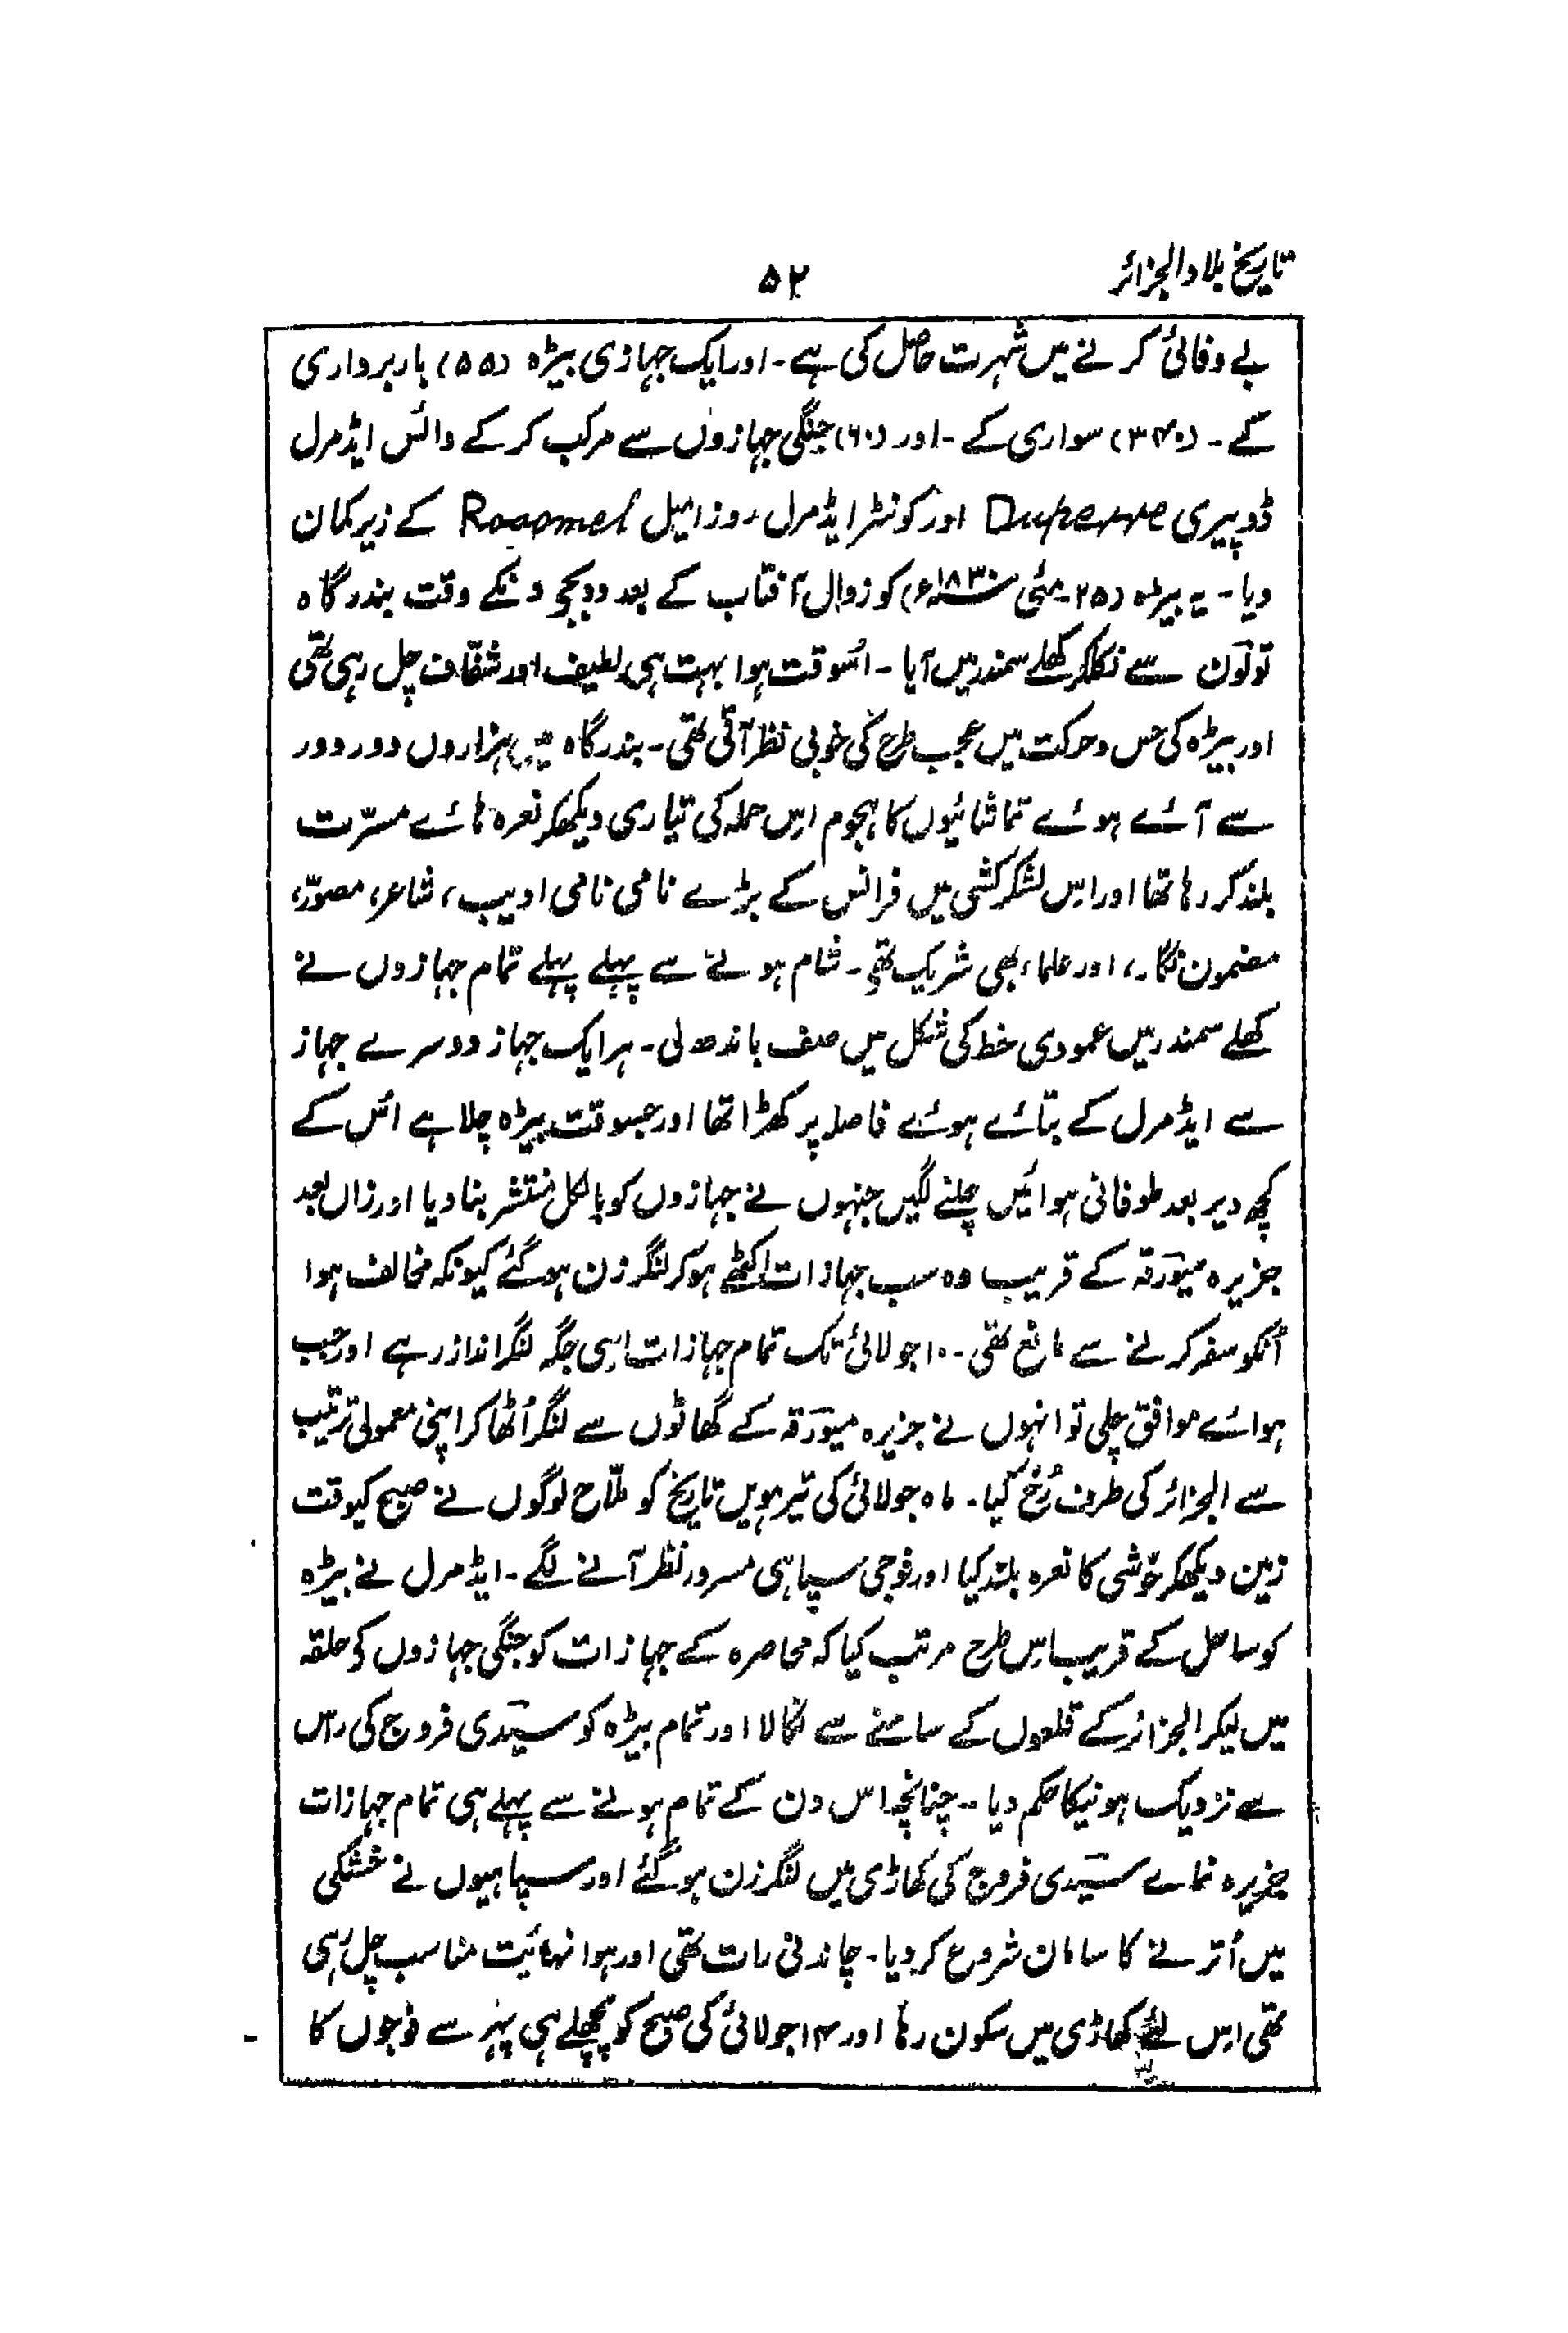 تاریخ بلاد الجزائر
۵۲
بے وفائی کرنے میں شہرت حاصل کی ہے۔ اور ایک جہازی بیڑہ (۵۵) باربرداری
کے۔ (۳۴۰) سواری کے۔ اور (۶۰) جنگی جہازوں سے مرکب کرکے وائس ایڈمرل
ڈوپیری Duperre اور کونٹر ایڈمرل روزامیل Rosomel کے زیر کمان
دیا۔ یہ بیڑہ (۲۵ مئی ۱۸۳۰ء) کو زوال آفتاب کے بعد دو بجے دنکے وقت بندرگاہ
تولون سے نکلکر کھلے سمندر میں آیا۔ اسوقت ہوا بہت ہی لطیف اور شفاف چل رہی تھی
اور بیڑہ کی حس وحرکت میں عجب طرح کی خوبی نظر آتی تھی۔ بندرگاہ میں ہزاروں دور دور
سے آئے ہوئے تماشائیوں کا ہجوم اس حملہ کی تیاری دیکھکر نعرہ ہائے مسرّت
بلند کر رہا تھا اور اس لشکر کشی میں فرانس کے بڑے نامی نامی ادیب، شاعر، مصوّر،
مضمون نگار، اور علماء بھی شریک تھے۔ شام ہونے سے پہلے پہلے تمام جہازوں نے
کھلے سمندر میں عمودی خط کی شکل میں صف باندھ لی۔ ہر ایک جہاز دوسرے جہاز
سے ایڈمرل کے بتائے ہوئے فاصلہ پر کھڑا تھا اور جسوقت بیڑہ چلا ہے اُس کے
کچھ دیر بعد طوفانی ہوائیں چلنے لگیں جنہوں نے جہازوں کو بالکل منتشر بنا دیا اور زاں بعد
جزیرہ میورقہ کے قریب وہ سب جہازات اکٹھے ہوکر لنگر زن ہوگئے کیونکہ مخالف ہوا
اُنکو سفر کرنے سے مانع تھی۔ ۱۰ جولائی تک تمام جہازات اسی جگہ لنگر انداز رہے اور جب
ہوائے موافق چلی تو انہوں نے جزیرہ میورقہ کے گھاٹوں سے لنگر اُٹھا کر اپنی معمولی ترتیب
سے الجزائر کی طرف رُخ کیا۔ ماہ جولائی کی تیرہویں تاریخ کو ملّاح لوگوں نے صبح کیوقت
زمین دیکھکر خوشی کا نعرہ بلند کیا اور فوجی سپاہی مسرور نظر آنے لگے۔ ایڈمرل نے بیڑہ
کو ساحل کے قریب اس طرح مرتب کیا کہ محاصرہ کے جہازات کو جنگی جہازوں کے حلقہ
میں لیکر الجزائر کے قلعوں کے سامنے سے نکالا اور تمام بیڑہ کو سیّدی فروج کی راس
سے نزدیک ہونیکا حکم دیا۔ چنانچہ اس دن کے تمام ہونے سے پہلے ہی تمام جہازات
جزیرہ نمائے سیّدی فروج کی کھاڑی میں لنگر زن ہوگئے اور سپاہیوں نے خشکی
میں اُترنے کا سامان شروع کر دیا۔ چاندنی رات تھی اور ہوا نہائیت مناسب چل رہی
تھی اس لئے کھاڑی میں سکون رہا اور ۱۴ جولائی کی صبح کو پچھلے ہی پہر سے فوجوں کا